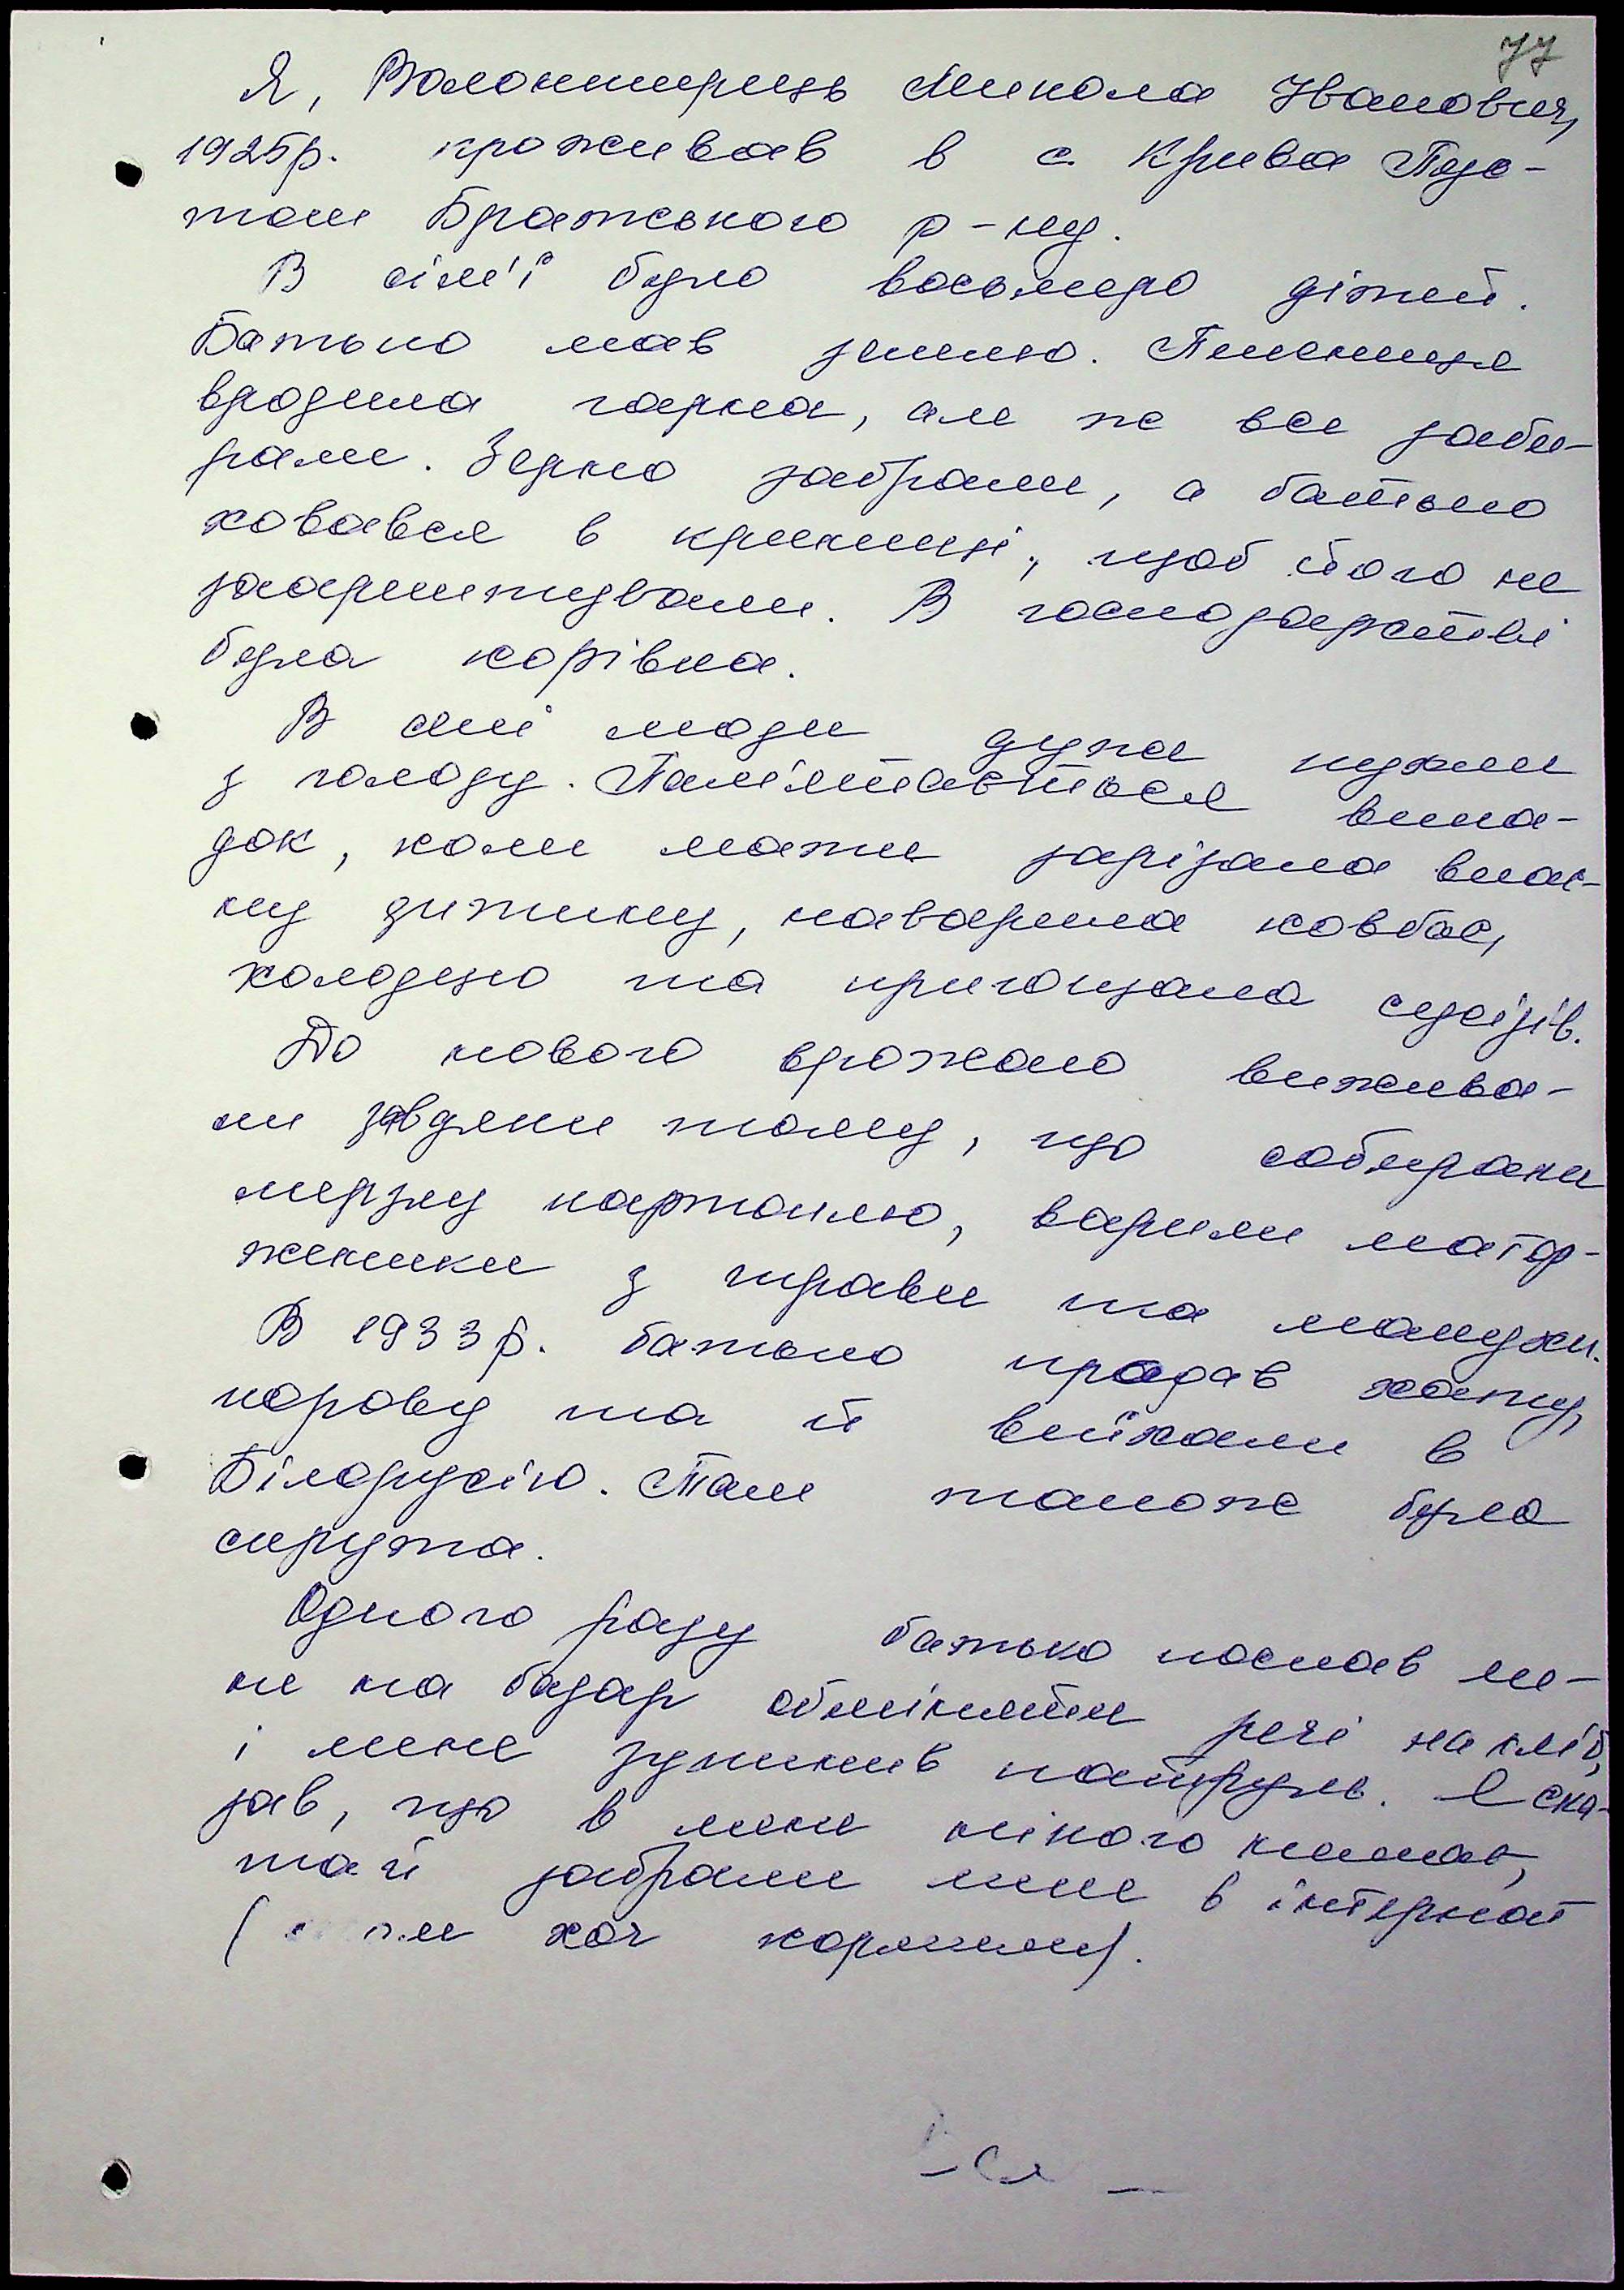 77
Я, Волонтирець Микола Іванович,
1925р. проживав в с. Крива Пус-
тош Братського р-ну.
В сім'ї було восьмеро дітей.
Батько мав землю. Пшениця
вродила гарна, але ж все заби-
рали. Зерно забрали, а батько
ховався в криниці, щоб його не
заарештували. В господарстві
була корівка.
В селі люди дуже пухли
з голоду. Пам'ятається випа-
док, коли мати зарізала влас-
ну дитину, наварила ковбас,
холодцю та пригощала сусідів.
До нового врожаю вижива-
ли завдяки тому, що собирали
мерзлу картоплю, варили матор-
женики з трави та макухи.
В 1933 р. батько продав хату,
корову та й виїхали в
Білорусію. Там також було
скрутно.
Одного разу батько послав ме-
не на базар обміняти речі на хліб,
і мене зупинив патруль. Я ска-
зав, що в мене нікого немає,
та й забрали мене в інтернат
( хоч кормили).